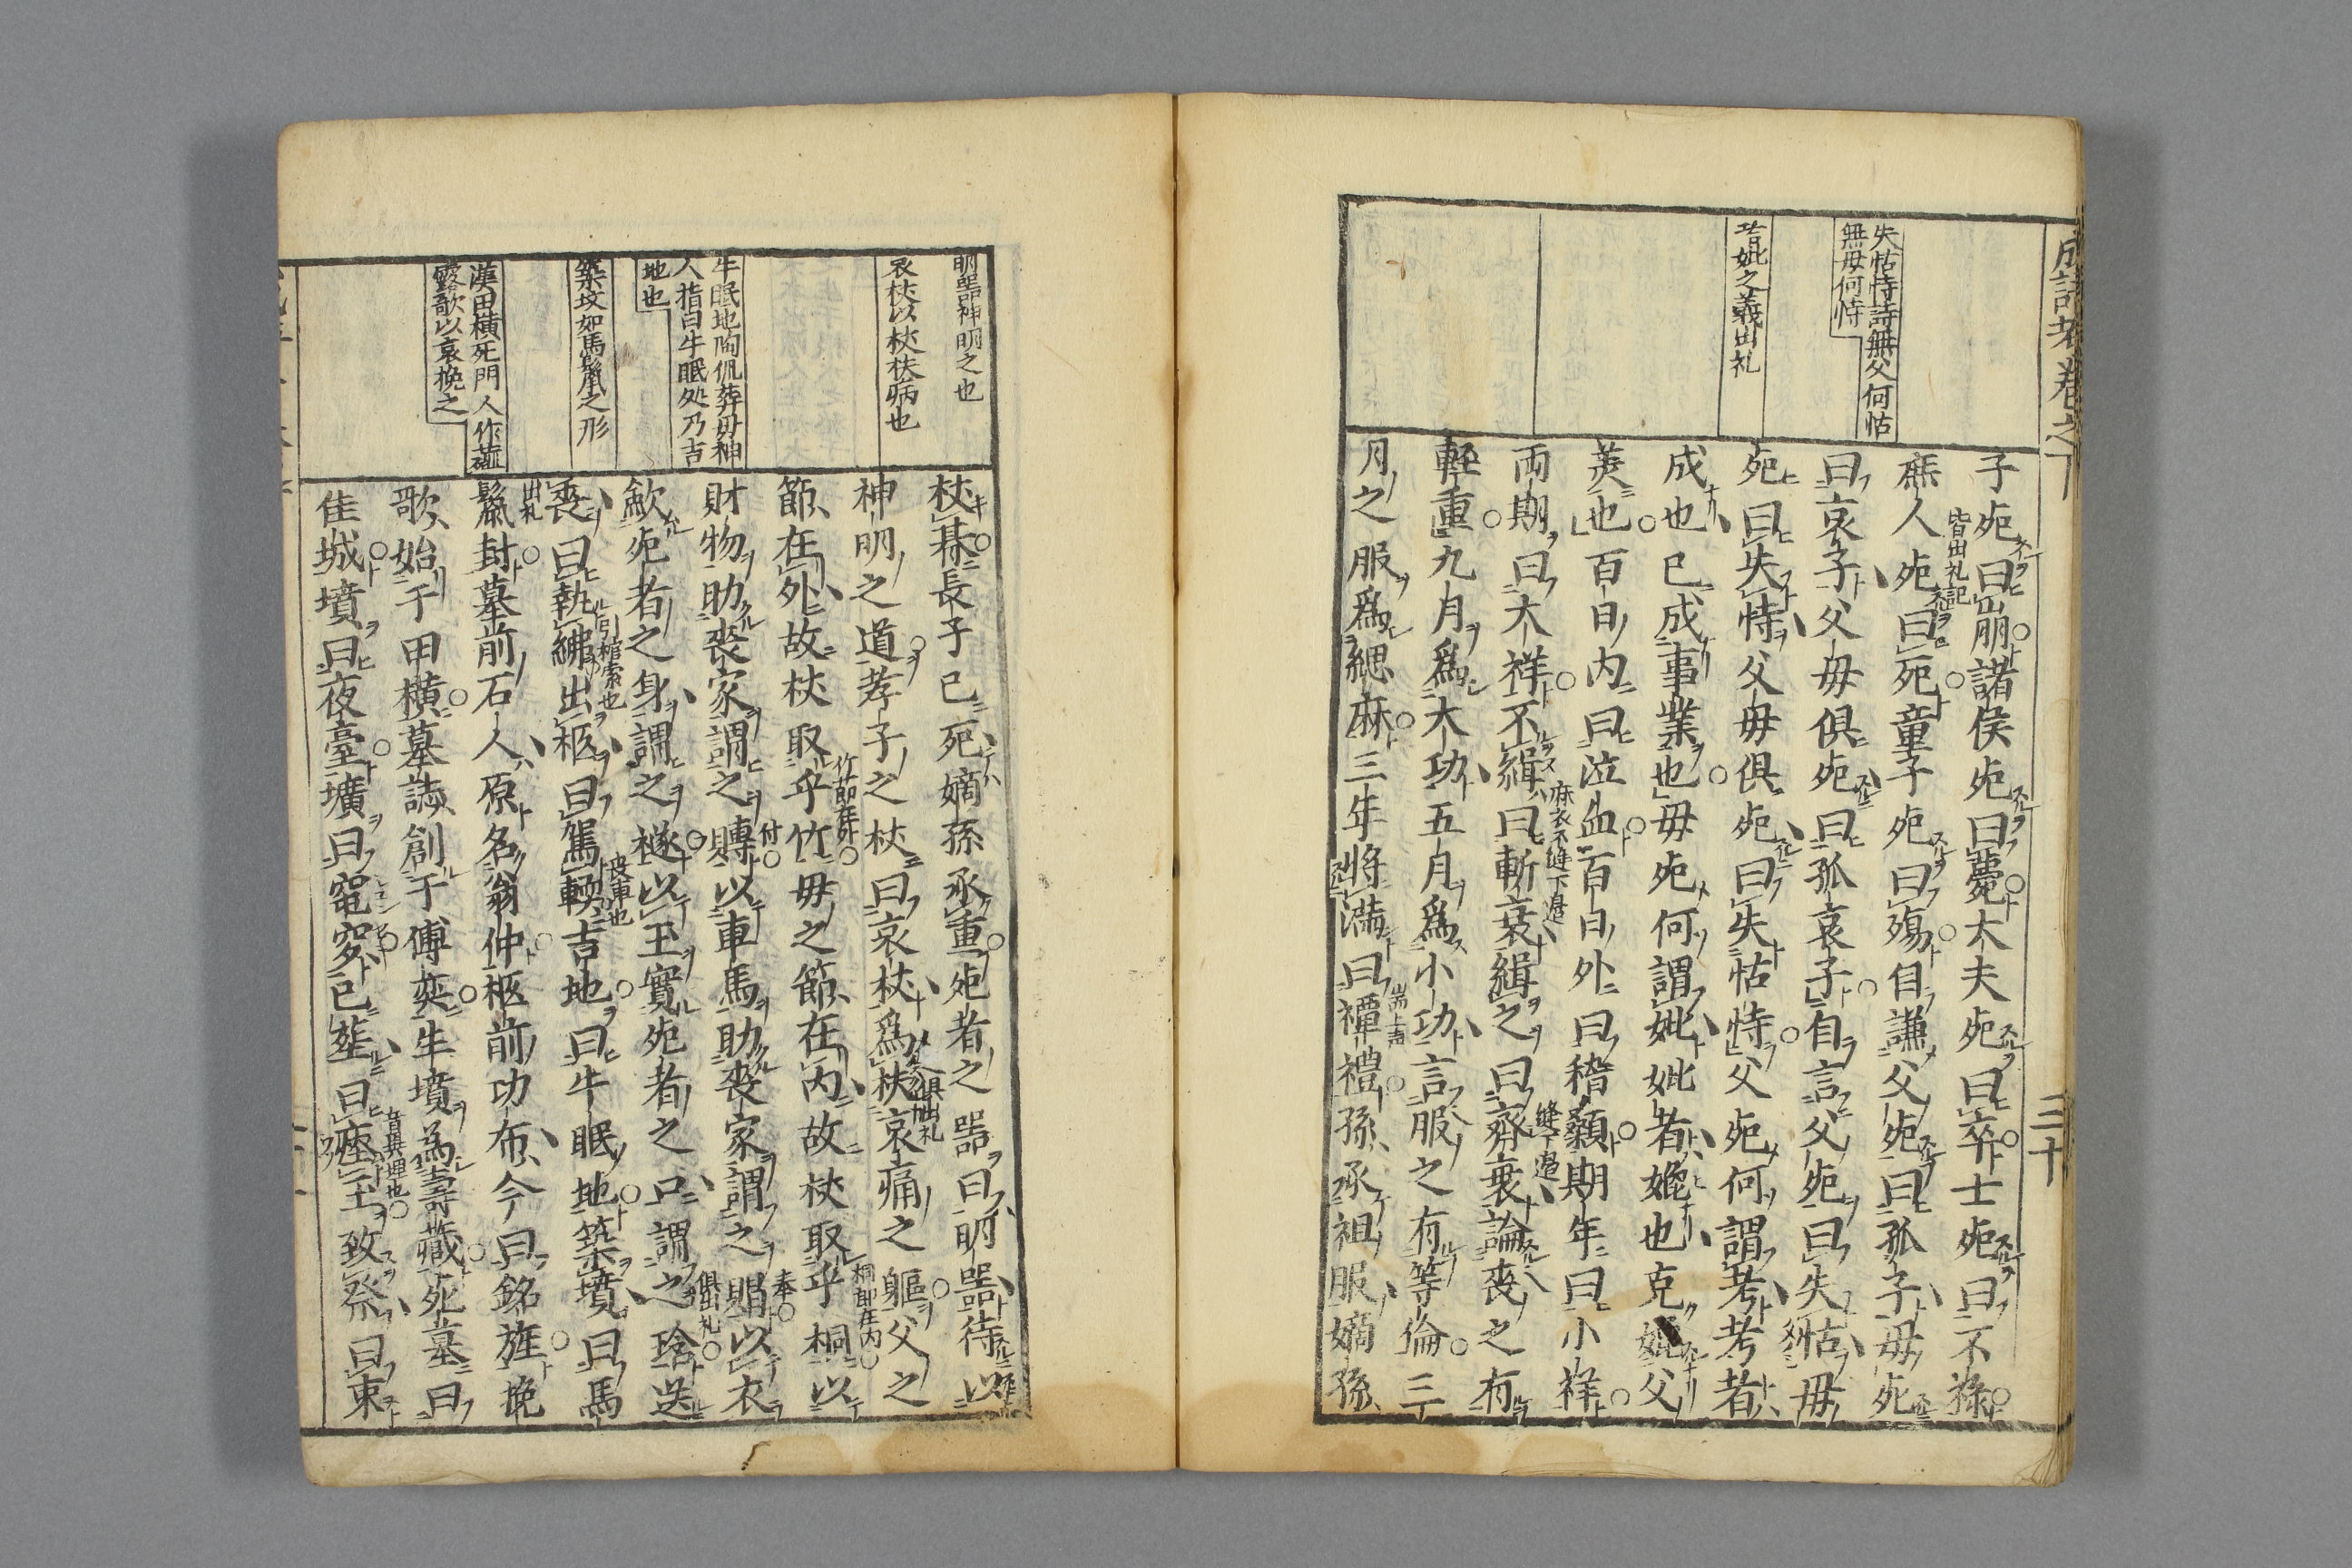 成語考卷之下
三十
失怙恃詩無父何怙
無母何恃
考妣之義出礼
子死曰崩諸侯死曰薨大夫死曰卒士死曰不祿
皆出礼記
庶人死曰死童子死曰殤自謙父死曰孤子母死
曰哀子父母俱死曰孤哀子自言父死曰失怙母
死曰失恃父母俱死曰失怙恃父死何謂考考者
成也已成事業也母死何謂妣妣者媲也克媲父
美也百日内曰泣血百日外曰稽顙期年曰小祥
麻衣不縫下邉
縫下邉
兩期曰大祥不緝曰斬衰緝之曰齊衰論喪之有
輕重九月爲大功五月爲小功言服之有等倫三
月之服爲緦麻三年將滿曰禫禮孫承祖服嫡孫
明器神明之也
哀杖以杖扶病也
牛眠地陶侃葬母神
人指曰牛眠処乃吉
地也
築坟如馬鬛之形
漢田横死門人作薤
露歌以哀挽之
杖朞長子已死嫡孫承重死者之器曰明器待以
俱出礼
神明之道孝子之杖曰哀杖爲扶哀痛之軀父之
竹節在外
桐節在内
節在外故杖取乎竹母之節在内故杖取乎桐以
財物助喪家謂之賻以車馬助喪家謂之賵以衣
俱出礼
斂死者之身謂之襚以玉實死者之口謂之琀送
引棺索也
喪車也
喪曰執紼出柩曰駕輀吉地曰牛眠地築墳曰馬
出礼
鬛封墓前石人原名翁仲柩前功布今曰銘旌挽
歌始于田横墓誌創于傅奕生墳為壽藏死墓曰
佳城墳曰夜臺壙曰窀穸已塟曰瘞玉致祭曰束